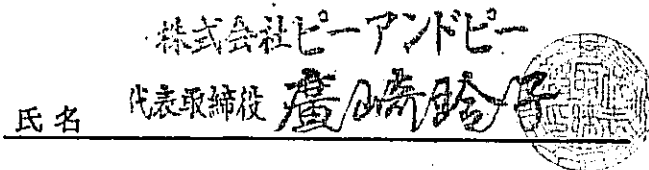 株式会社ピーアンドピー
氏名 代表取締役 廣崎鈴子